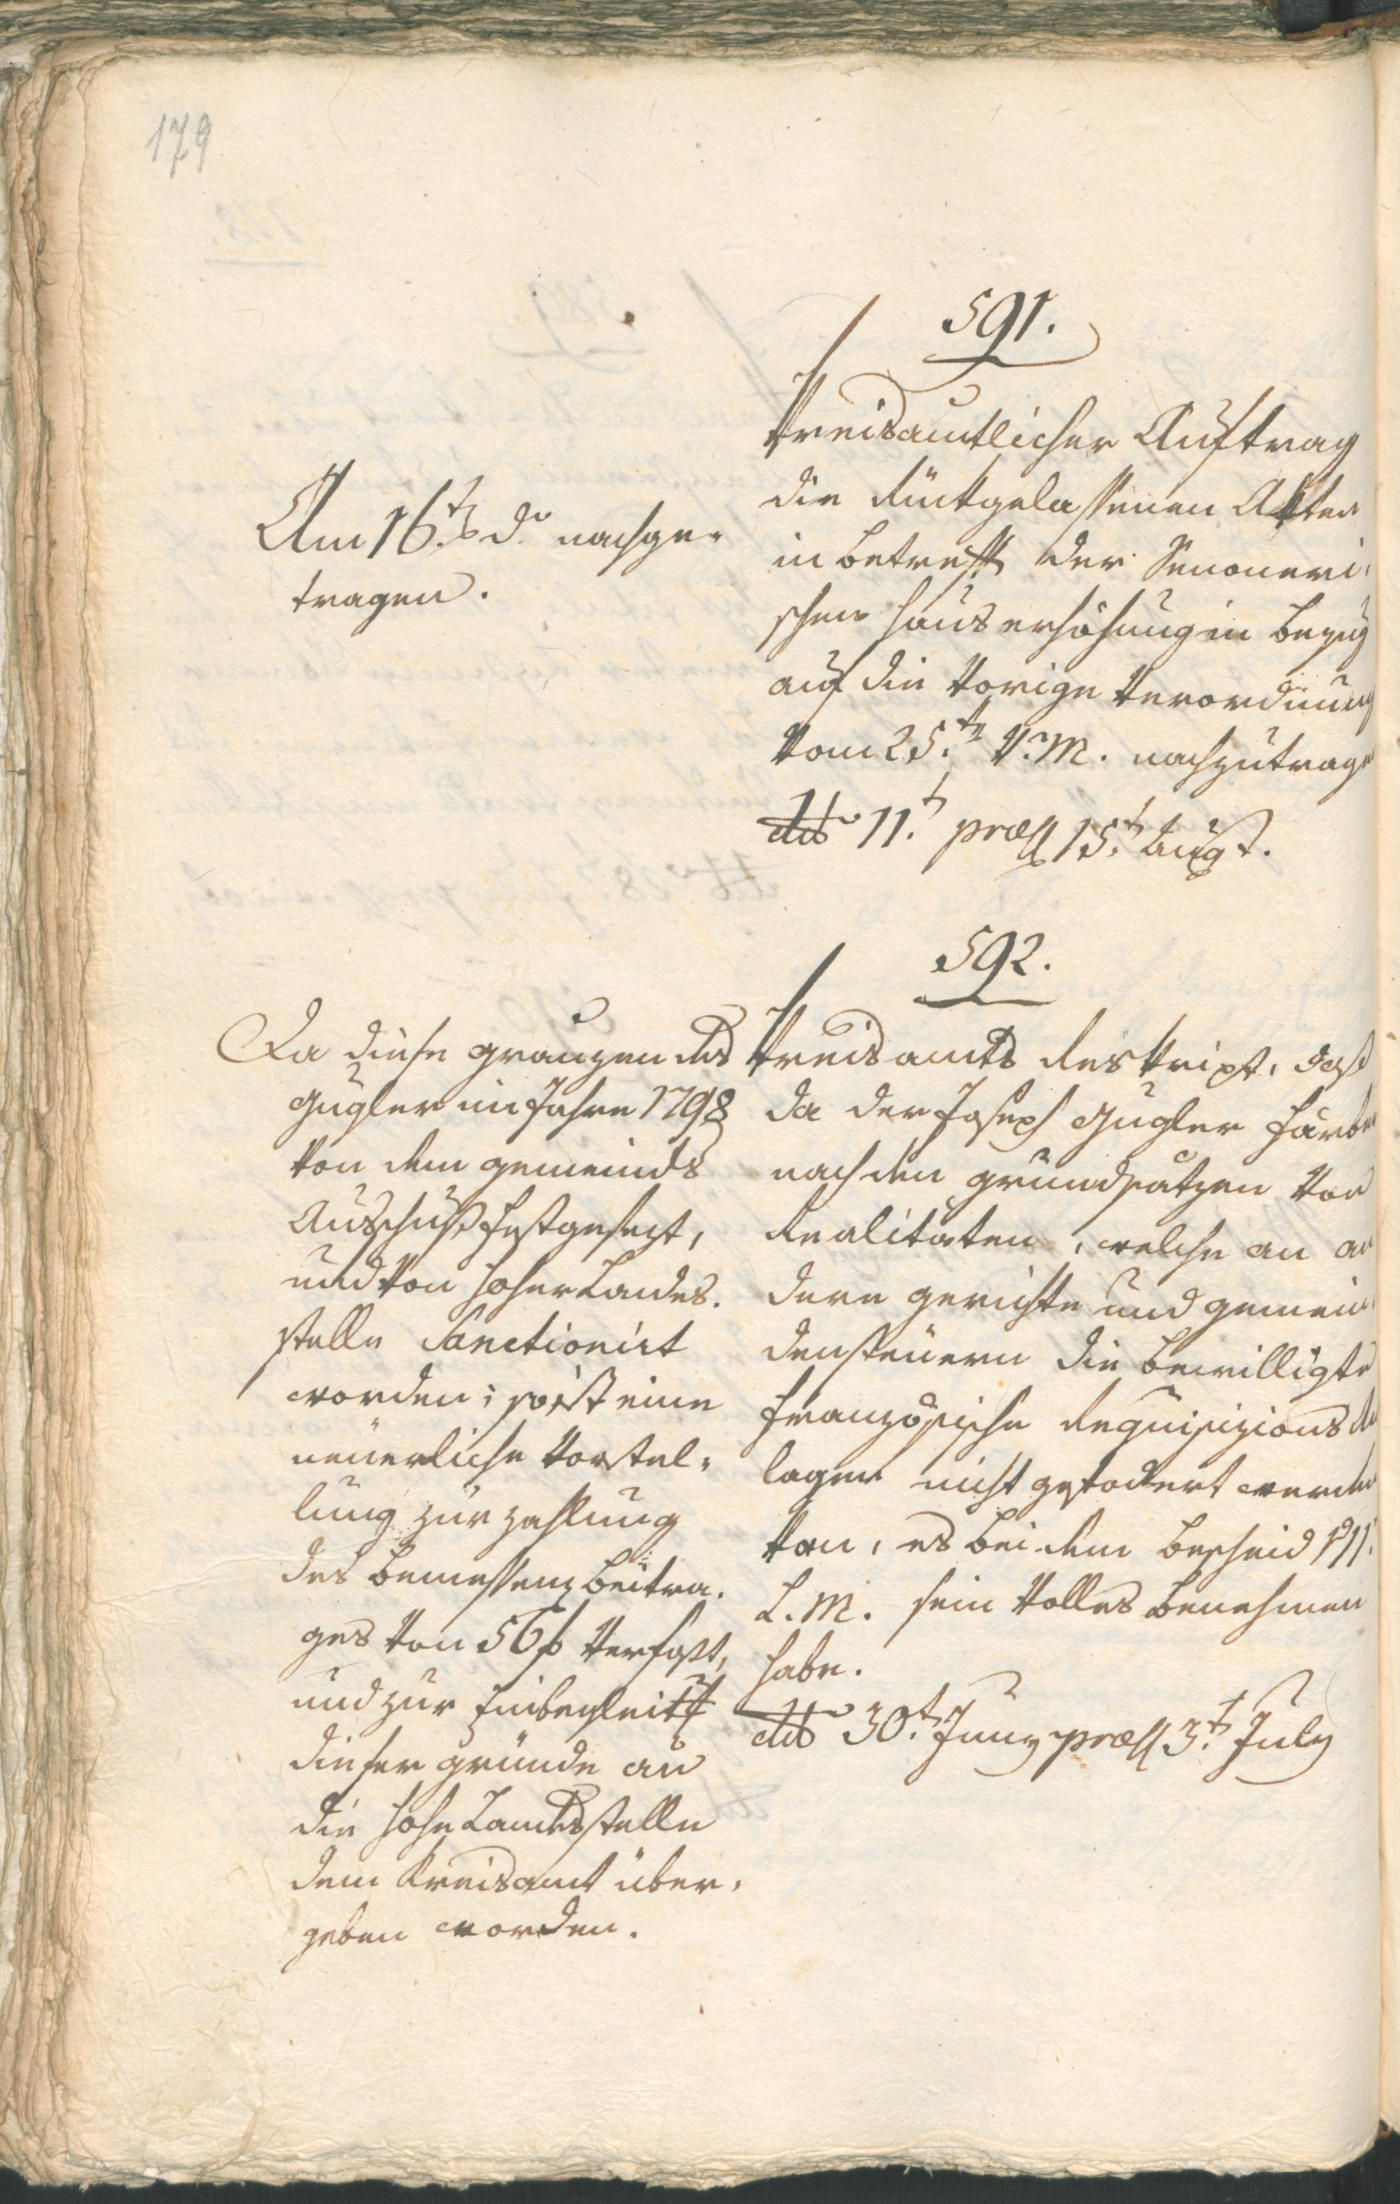 179
591.
Kreisamtlicher Auftrag
die Rückgelassenen Akten
in betreff der Simoneri,
schen Hauserhöhung in bezug
auf die Vorige Verordnung
Vom 25.tn V. M. nachzutrage
ddo 11.t præs 15.t Augst.
Am 16.tn d.o nachge„
tragen.
592.
Kreisamts Reskript, daß
da der Joseph Gugler Färber
nach den grundsätzen Von
Realitäten, welche an an
dere gerichte und gemein
den steuern die bewilligte
französische Requisizions
lagen nicht gefodert werden
es bei dem bescheid
L. M. sein Volles benehmen
habe.
ddo 30.t Juny præs 3.t July
Da diese granzen des
Gugler im Jahre 1798
Von dem gemeinds
Ausschuß festgesezt,
und Von hoher Landes.
stelle Sanctionirt
worden; so ist eine
neuerliche Vorstel„
lung zur zahlung
des bemessenen beitra.
ges Von 56 f Verfaßt,
und zur Einbegleitg
dieser gründe an
die hohe Landesstelle
dem Kreisamt über,
geben worden.